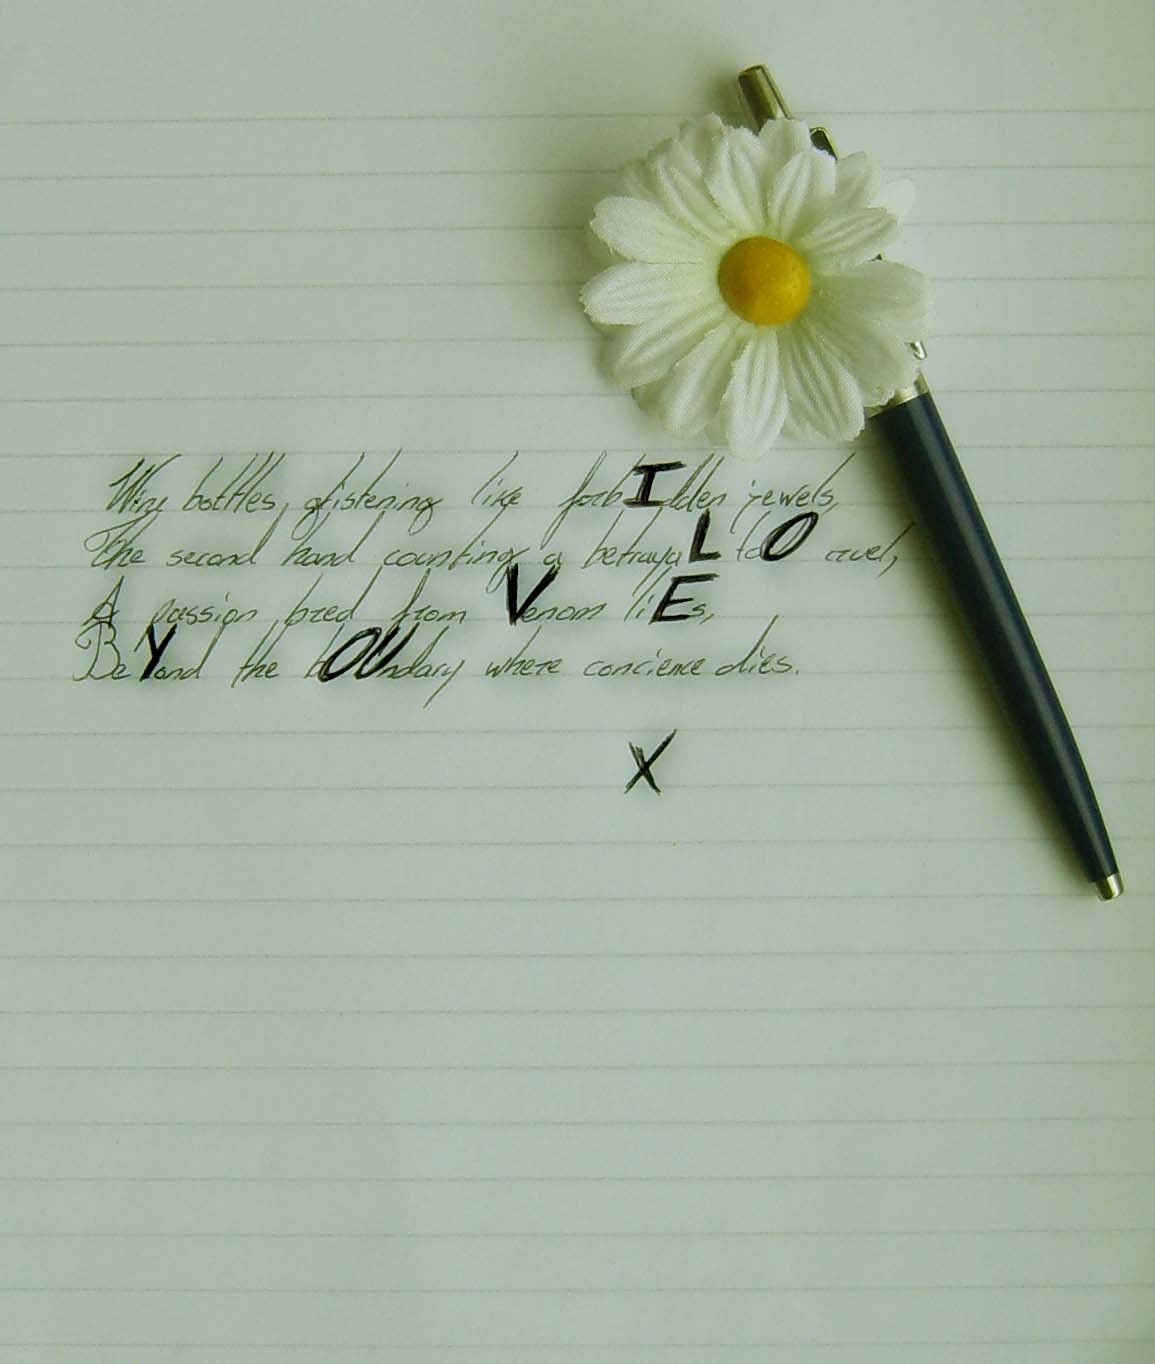 Wine bottles, glistening like forbIdden jewels,
The second hand counting a betrayaL toO cruel,
A passion bred from Venom liEs,
BeYond the bOUndary where concience dies.
X